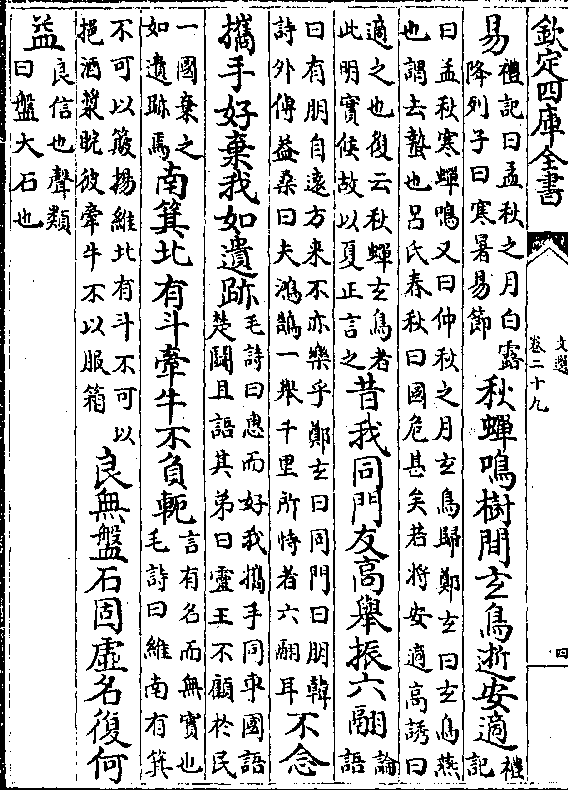 欽定四庫全書
文選
卷二十九
四
易禮記曰孟秋之月白露降列子曰寒暑易節秋蟬鳴樹間玄鳥逝安適禮記
曰孟秋寒蟬鳴又曰仲秋之月玄鳥歸鄭玄曰玄鳥燕也謂去蟄也呂氏春秋曰國危甚矣若將安適高誘曰
適之也復云秋蟬玄鳥者此明實候故以夏正言之昔我同門友高舉振六翮論語
曰有朋自遠方來不亦樂乎鄭玄曰同門曰朋韓詩外傳益桑曰夫鴻鵠一舉千里所恃者六翮耳不念
攜手好棄我如遺跡毛詩曰惠而好我攜手同車國語楚鬬且語其弟曰靈王不顧於民
一國棄之如遺跡焉南箕北有斗牽牛不負軛言有名而無實也毛詩曰維南有箕
不可以簸揚維北有斗不可以挹酒漿睆彼牽牛不以服箱良無盤石固虛名復何
益良信也聲類曰盤大石也